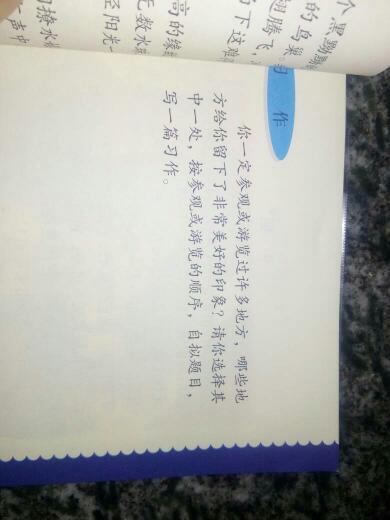 个黑黝黝
的鸟巢。
翅腾飞，
下这难
习作
你一定参观或游览过许多地方，哪些地
方给你留下了非常美好的印象？请你选择其
中一处，按参观或游览的顺序，自拟题目，
写一篇习作。
高的缘
无数水
径阳光
撩水
声中